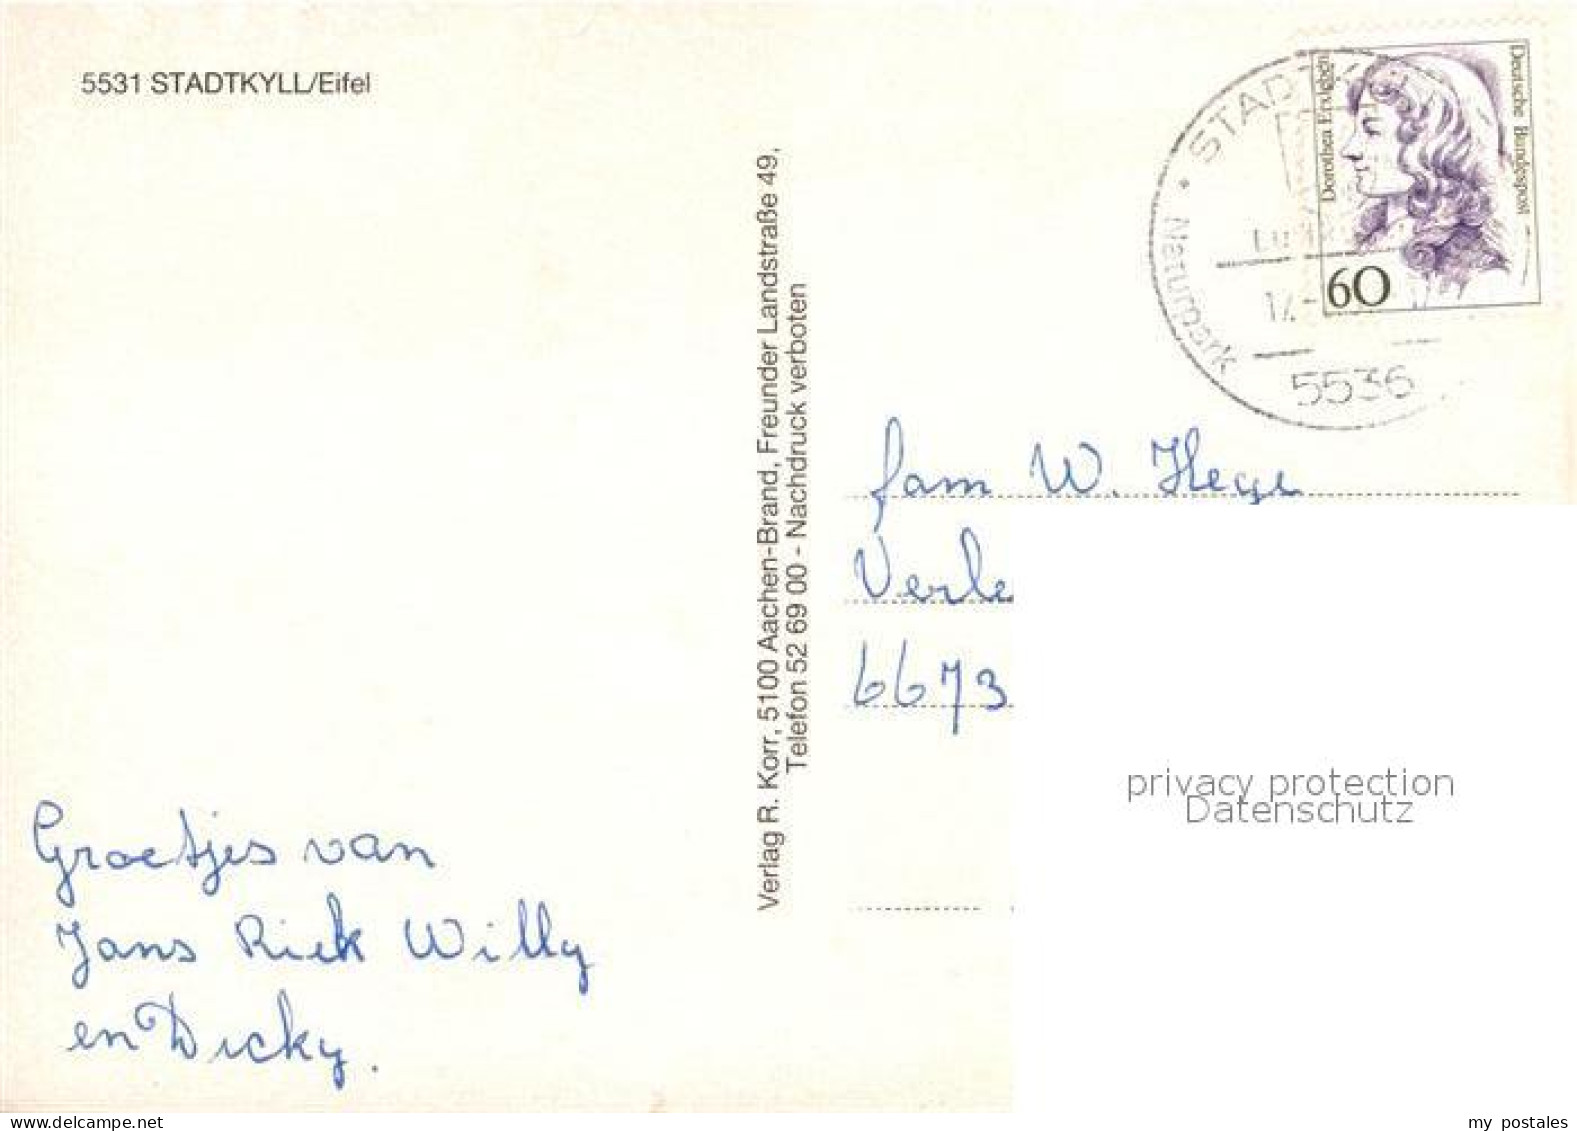 5531 STADTKYLL/Eifel
Verlag R. Korr, 5100 Aachen-Brand, Freunder Landstraße 49,
Telefon 52 69 00 - Nachdruck verboten
STADTKYLL
Naturpark
5536
Dorothea Erxleben
Deutsche Bundespost
60
fam W. Hege
Verle
6673
privacy protection
Datenschutz
Groetjes van
Jans Riek Willy
en Dicky.
www.delcampe.net
my postales